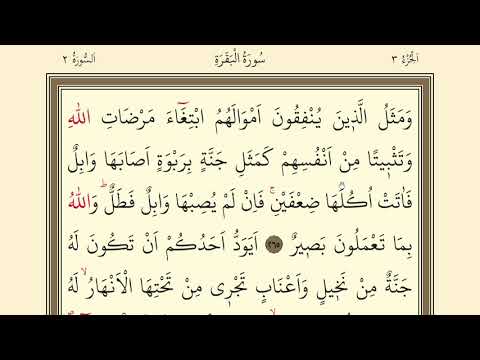 اَلْجُزْءُ ٣ سُورَةُ الْبَقَرَةِ اَلسُّورَةُ ٢
وَمَثَلُ الَّذ۪ينَ يُنْفِقُونَ اَمْوَالَهُمُ ابْتِغَٓاءَ مَرْضَاتِ اللّٰهِ
وَتَثْب۪يتًا مِنْ اَنْفُسِهِمْ كَمَثَلِ جَنَّةٍ بِرَبْوَةٍ اَصَابَهَا وَابِلٌ
فَاٰتَتْ اُكُلَهَا ضِعْفَيْنِۚ فَاِنْ لَمْ يُصِبْهَا وَابِلٌ فَطَلٌّۜ وَاللّٰهُ
بِمَا تَعْمَلُونَ بَص۪يرٌ ﴿٢٦٥﴾ اَيَوَدُّ اَحَدُكُمْ اَنْ تَكُونَ لَهُ
جَنَّةٌ مِنْ نَخ۪يلٍ وَاَعْنَابٍ تَجْر۪ي مِنْ تَحْتِهَا الْاَنْهَارُۙ لَهُ